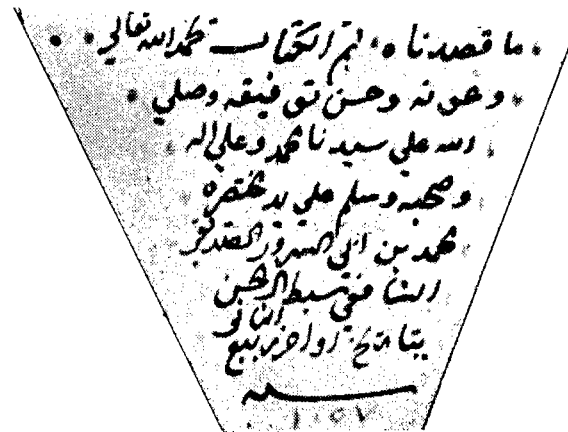 ما قصدناه تم الكتاب بحمد الله تعالي
وعونه وحسن توفيقه وصلي
الله علي سيدنا محمد وعلي اله
وصحبه وسلم علي يد مختصره
محمد بن ابي السرور الصديقي
الشافعي سبط ال الحسن
بتاريخ اواخر ربيع الثاني
سنه
١٠٥٧